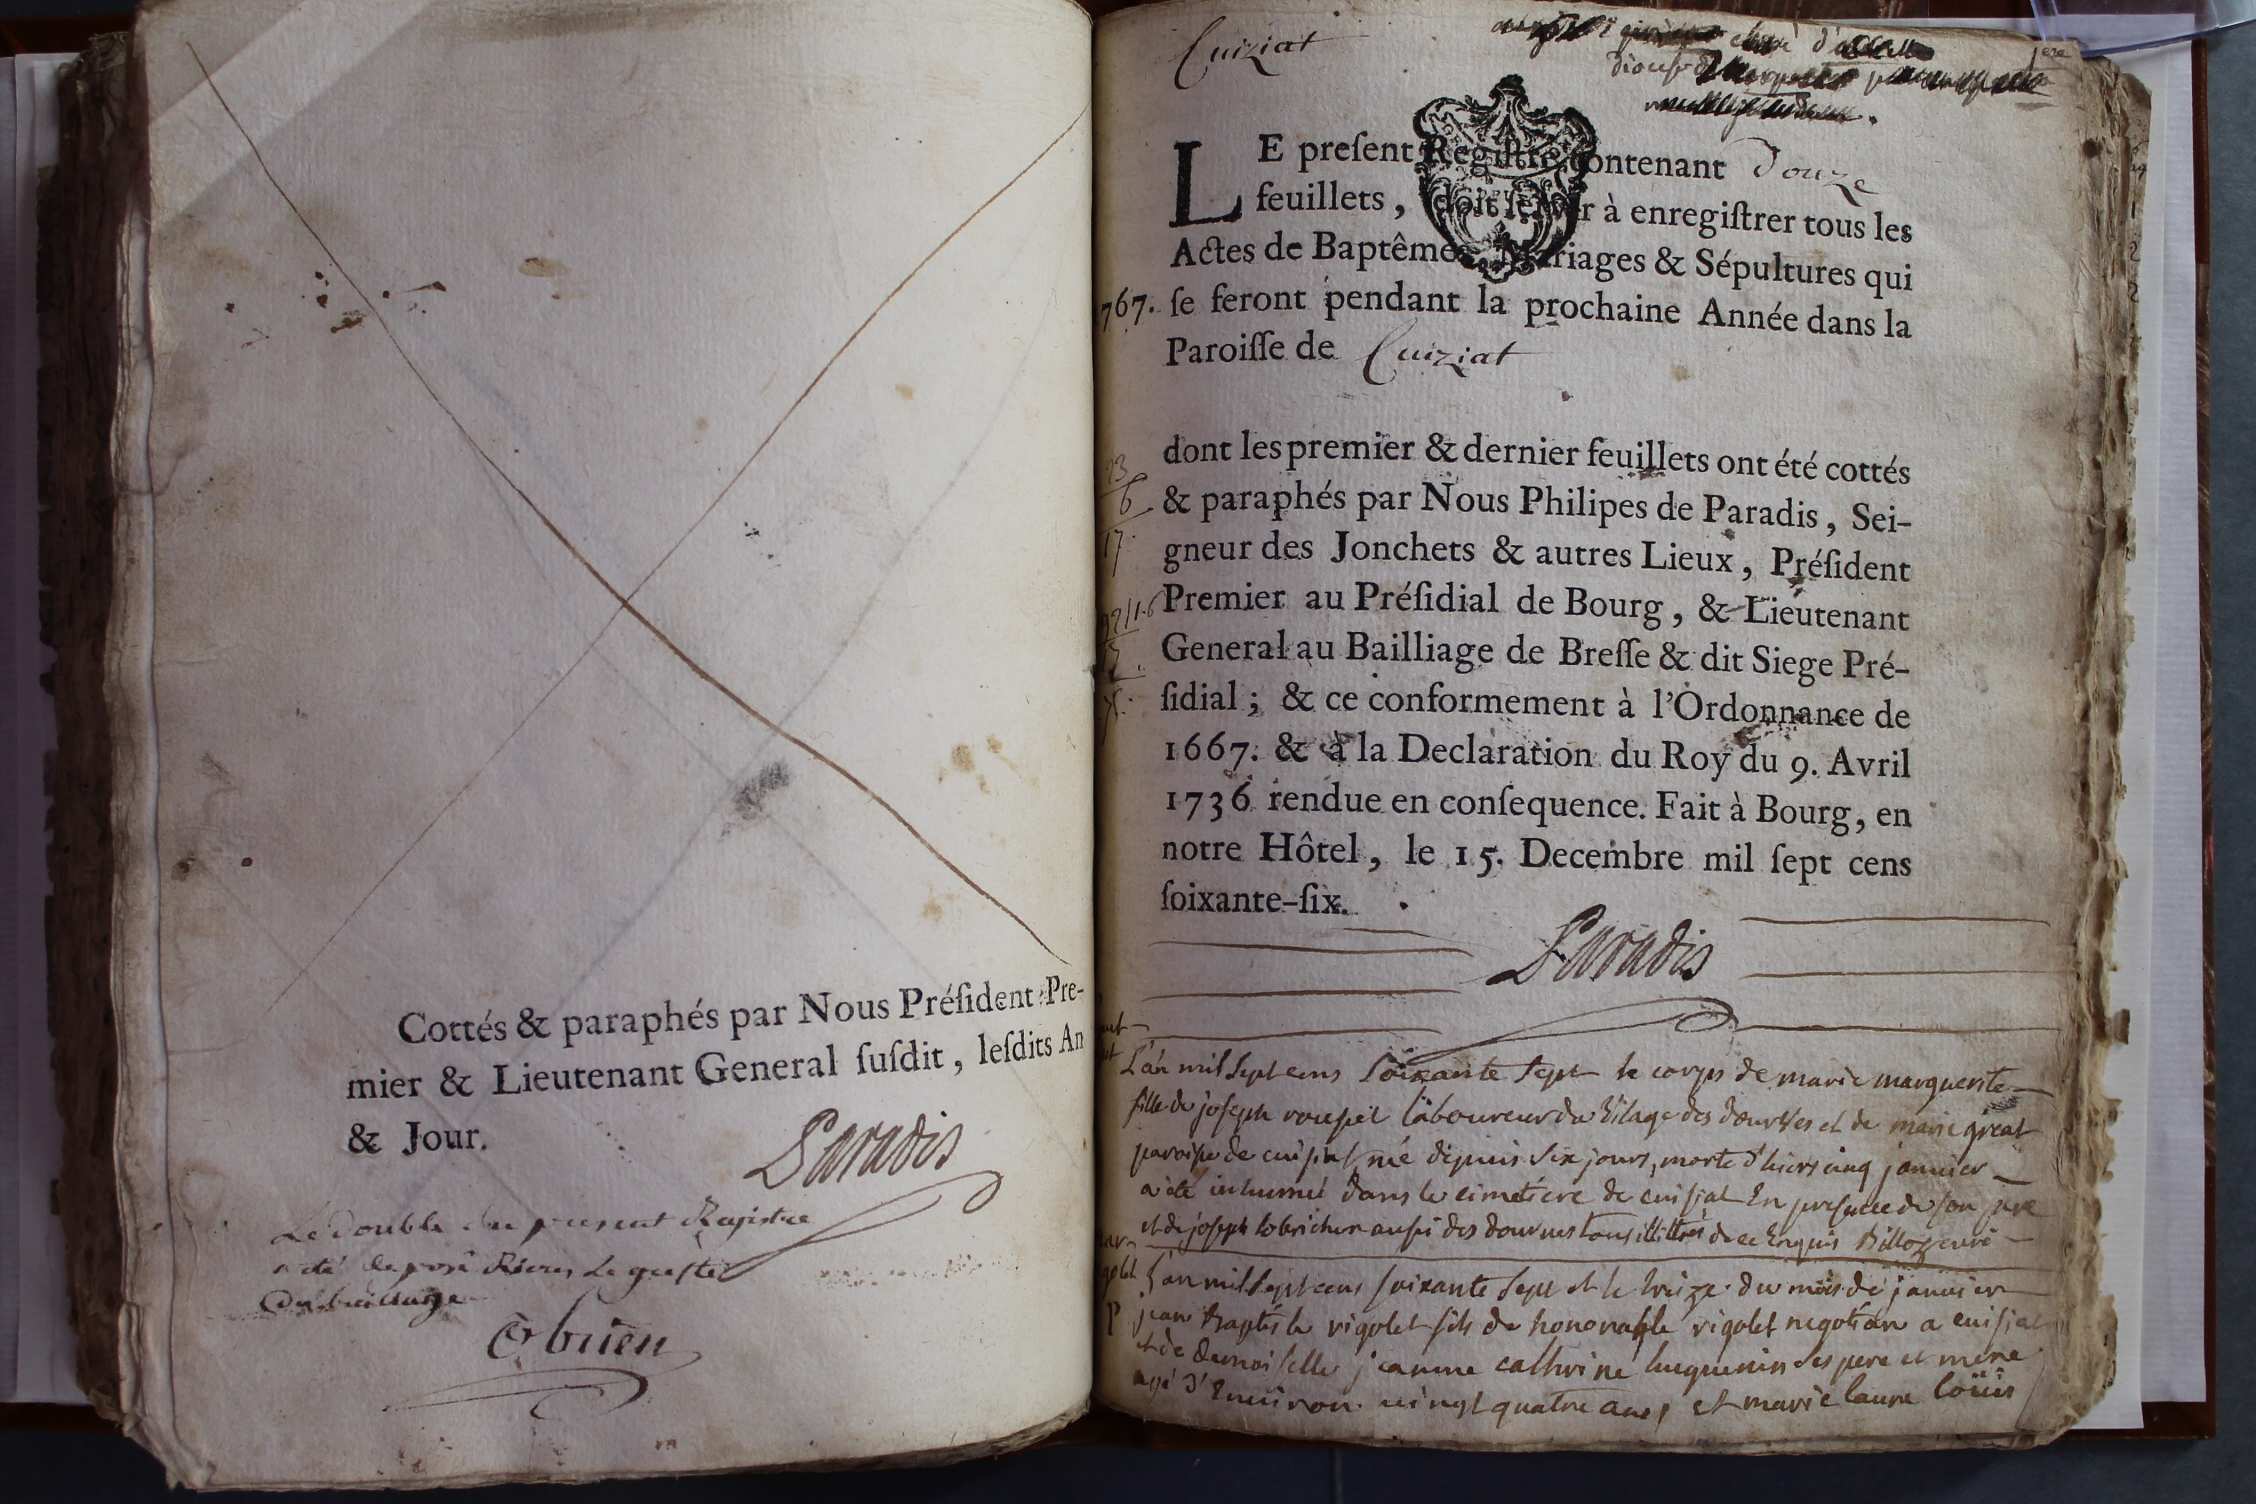 Cottés & paraphés par Nous Préſident Pre-
mier & Lieutenant General ſuſdit, leſdits An
& Jour.
Paradis
Le double du present Registre
a été deposé rieres le greffe
du bailliage
Cuiziat
1ere
LE preſent Regiſtre contenant Douze
feuillets, doit ſervir à enregiſtrer tous les
Actes de Baptêmes, Mariages & Sépultures qui
1767. ſe feront pendant la prochaine Année dans la
Paroiſſe de Cuiziat
dont les premier & dernier feuillets ont été cottés
& paraphés par Nous Philipes de Paradis, Sei-
gneur des Jonchets & autres Lieux, Préſident
Premier au Préſidial de Bourg, & Lieutenant
General au Bailliage de Breſſe & dit Siege Pré-
ſidial; & ce conformement à l'Ordonnance de
1667. & à la Declaration du Roy du 9. Avril
1736 rendue en conſequence. Fait à Bourg, en
notre Hôtel, le 15. Decembre mil ſept cens
ſoixante-ſix.
Paradis
L'an mil sept cens soixante sept le corps de marie marguerite
fille de joseph laboureur du vilage des et de marie
paroisse de cuisiat née depuis six jours, morte d'hiers cinq janvier
a été inhumé dans le cimetiere de cuisiat En presence de son pere
et de joseph aussi des tous illittrés de ce Enquis
L'an mil sept cens soixante sept et le treize du mois de janvier
jean baptiste rigolet fils de honorable rigolet negotian a cuisiat
et de demoiselle jeanne cathrine huguenin ses pere et mere
agé d'Environ vingt quatre ans, et marie laure loüis